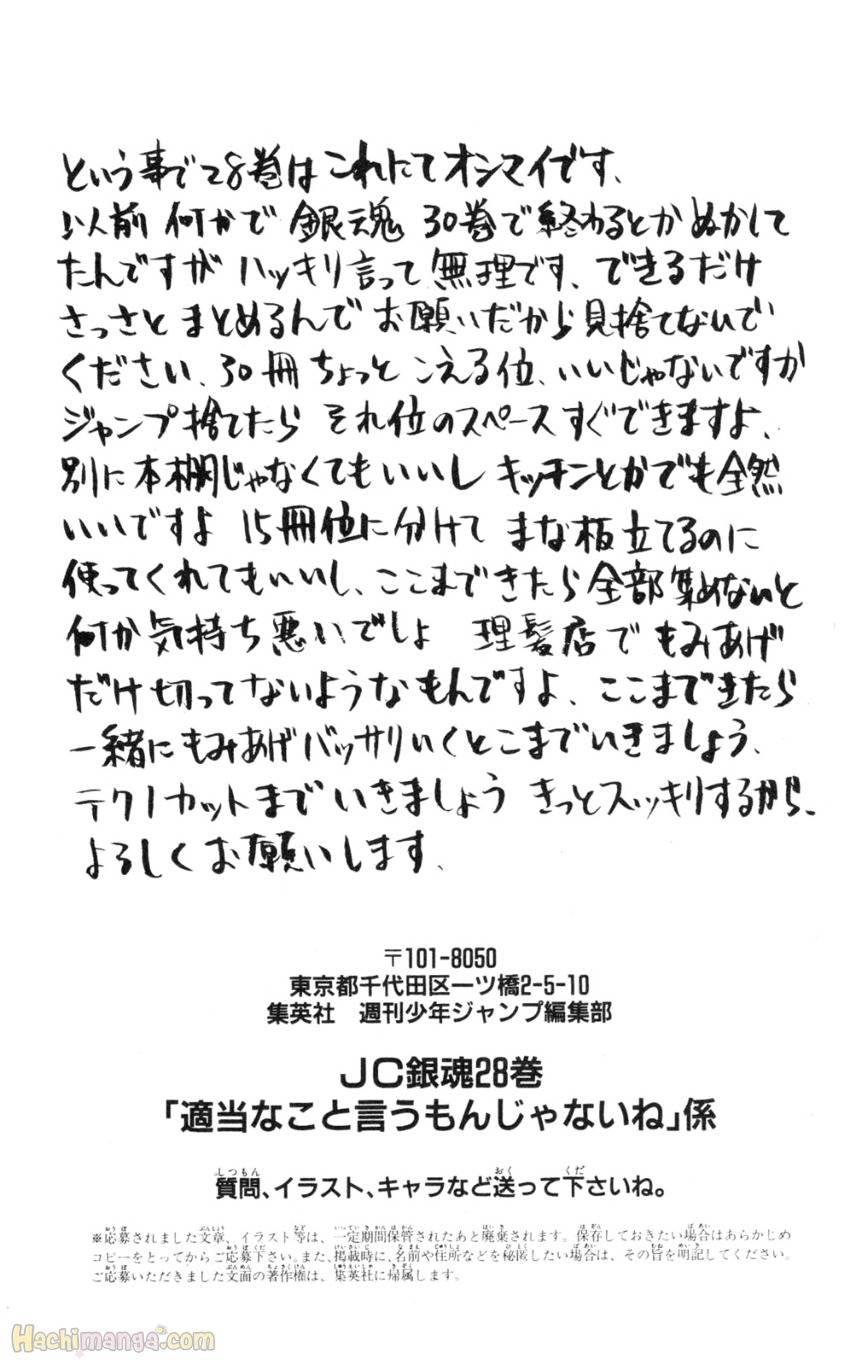 という事で28巻はこれにてオシマイです、
以前 何かで 銀魂 30巻で終わるとかぬかして
たんですが ハッキリ言って無理です、できるだけ
さっさと まとめるんで お願いだから見捨てないで
ください、30冊ちょっと こえる位、いいじゃないですか
ジャンプ捨てたら それ位のスペースすぐできますよ、
別に本棚じゃなくてもいいし キッチンとかでも全然
いいですよ 15冊位に分けて まな板立てるのに
使ってくれてもいいし、ここまできたら全部集めないと
何か気持ち悪いでしょ 理髪店で もみあげ
だけ切ってないようなもんですよ、ここまできたら
一緒にもみあげバッサリいくとこまでいきましょう、
テクノカットまでいきましょう きっとスッキリするから、
よろしくお願いします、
〒101-8050
東京都千代田区一ツ橋2-5-10
集英社 週刊少年ジャンプ編集部
JC銀魂28巻
「適当なこと言うもんじゃないね」係
質問、イラスト、キャラなど送って下さいね。
※応募されました文章、イラスト等は、一定期間保管されたあと廃棄されます。保存しておきたい場合はあらかじめ
コピーをとってからご応募下さい。また、掲載時に、名前や住所などを秘匿したい場合は、その旨を明記してください。
ご応募いただきました文面の著作権は、集英社に帰属します。
Hachimanga.com